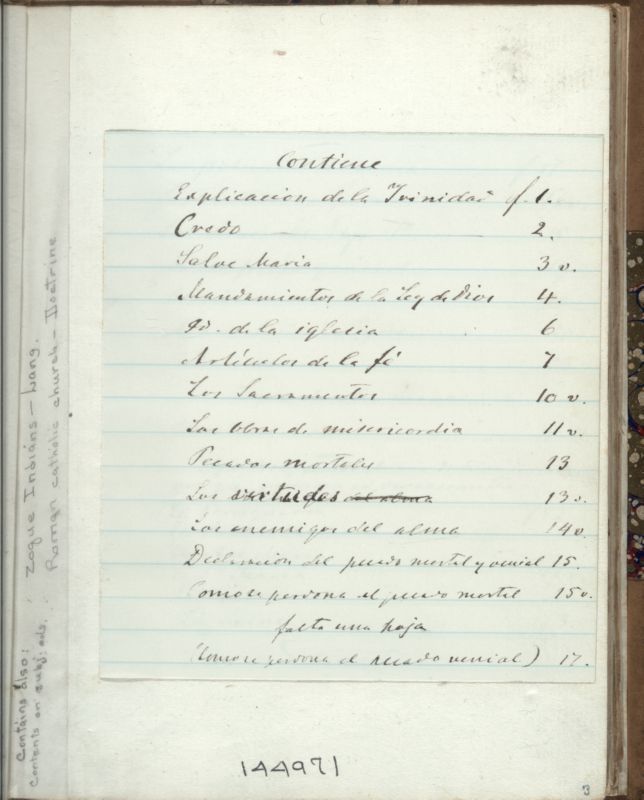 Contiene
Explicacion de la Trinidad f. 1.
Credo 2.
Salve Maria 3 v.
Mandamientos de la Ley de Dios 4.
Id. de la iglesia 6
Artículos de la fé 7
Los Sacramentos 10 v.
Las obras de misericordia 11 v.
Pecados mortales 13
Las virtudes del alma 13 v.
Los enemigos del alma 14 v.
Declaracion del pecado mortal y venial 15.
Como se perdona el pecado mortal 15 v.
falta una hoja
(Como se perdona el pecado venial) 17.
144971
3
Contains also:
Contents on subj: ads.
Zoque Indians – Lang.
Roman catholic church – Doctrine